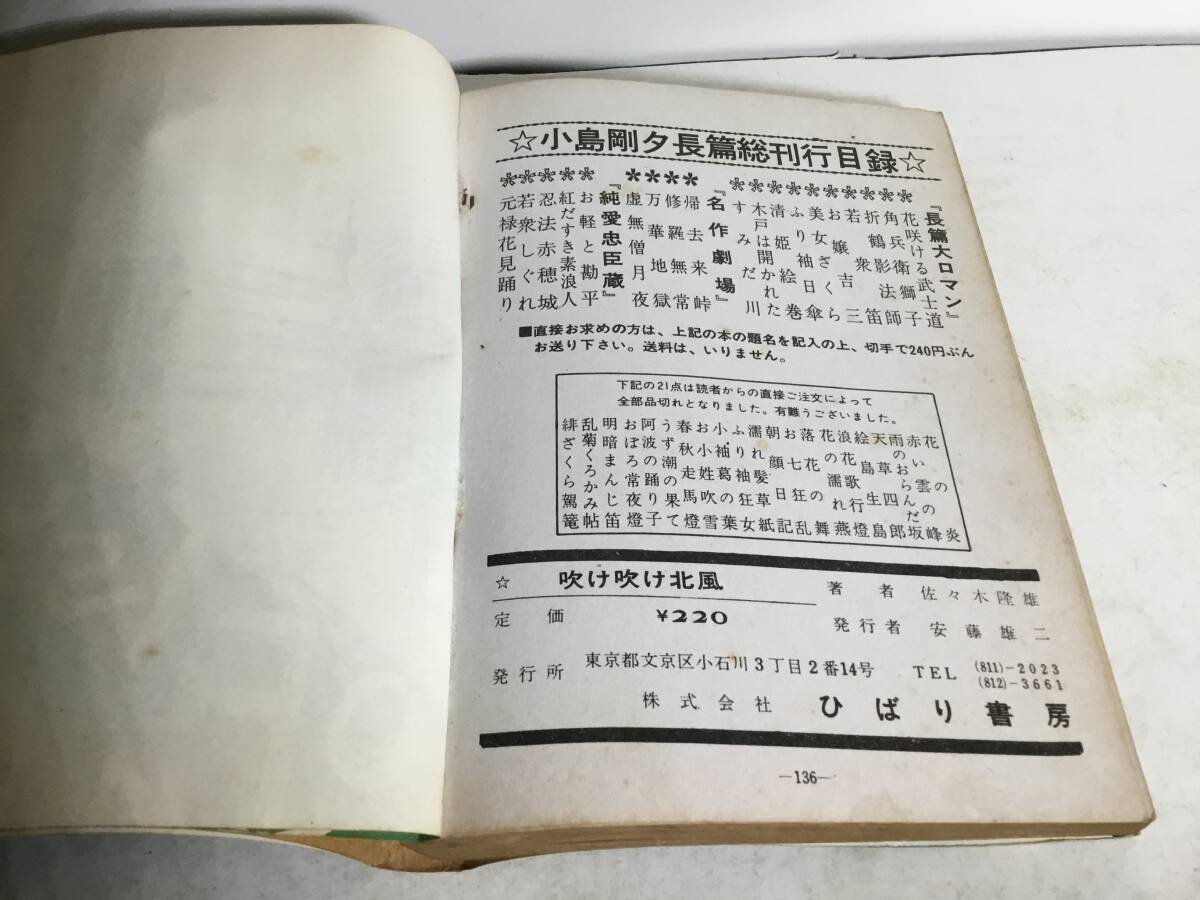 ☆小島剛夕長篇総刊行目録☆
『長篇大ロマン』
花咲ける武士道
角兵衛獅子
折鶴影法師
若衆笛
お嬢吉三
美女ざくら
ふり袖日傘
清姫絵巻
木戸は開かれた
すみだ川
『名作劇場』
帰去来峠
修羅無常
万華地獄
虚無僧月夜
『純愛忠臣蔵』
お軽と勘平
紅だすき素浪人
忍法赤穂城
若衆しぐれ
元禄花見踊り
■直接お求めの方は、上記の本の題名を記入の上、切手で240円ぶん
お送り下さい。送料は、いりません。
下記の21点は読者からの直接ご注文によって
全部品切れとなりました。有難うございました。
花の炎
赤い雲の峰
雨のおらんだ坂
天草四郎
絵島生島
浪花歌行燈
花の濡れ燕
落花の舞
お七狂乱
朝顔日記
濡れ髪草紙
ふり袖狂女
小袖葛の葉
お小姓吹雪
春秋走馬燈
うず潮の果て
阿波の踊り子
おぼろ常夜燈
明暗まんじ笛
乱菊くろかみ帖
緋ざくら駕篭
☆ 吹け吹け北風
著者 佐々木隆雄
定価 ¥220
発行者 安藤雄二
発行所 東京都文京区小石川3丁目2番14号 TEL (811)-2023
(812)-3661
株式会社 ひばり書房
—136—